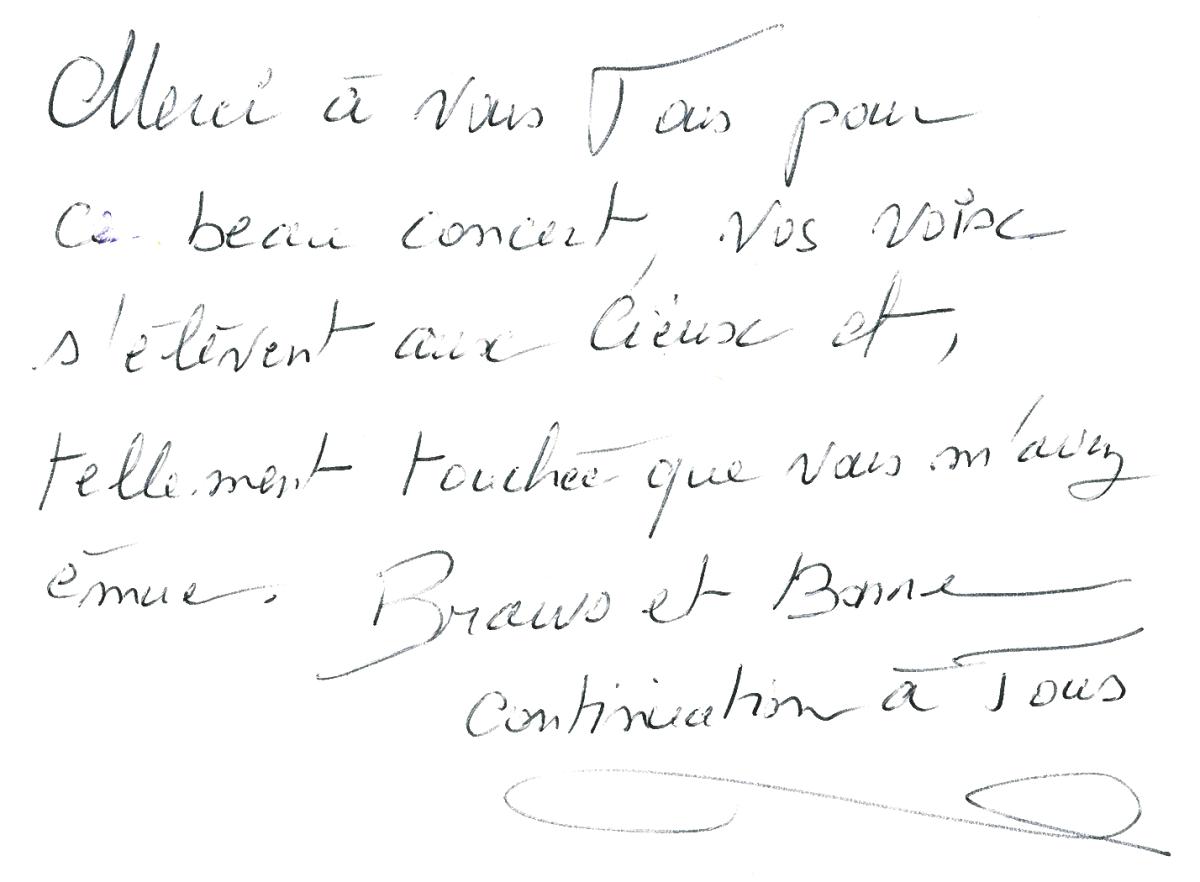 Merci à vous Tous pour
ce beau concert, vos voix
s'élèvent aux Cieux et,
tellement touchée que vous m'avez
émue. Bravo et Bonne
continuation à Tous